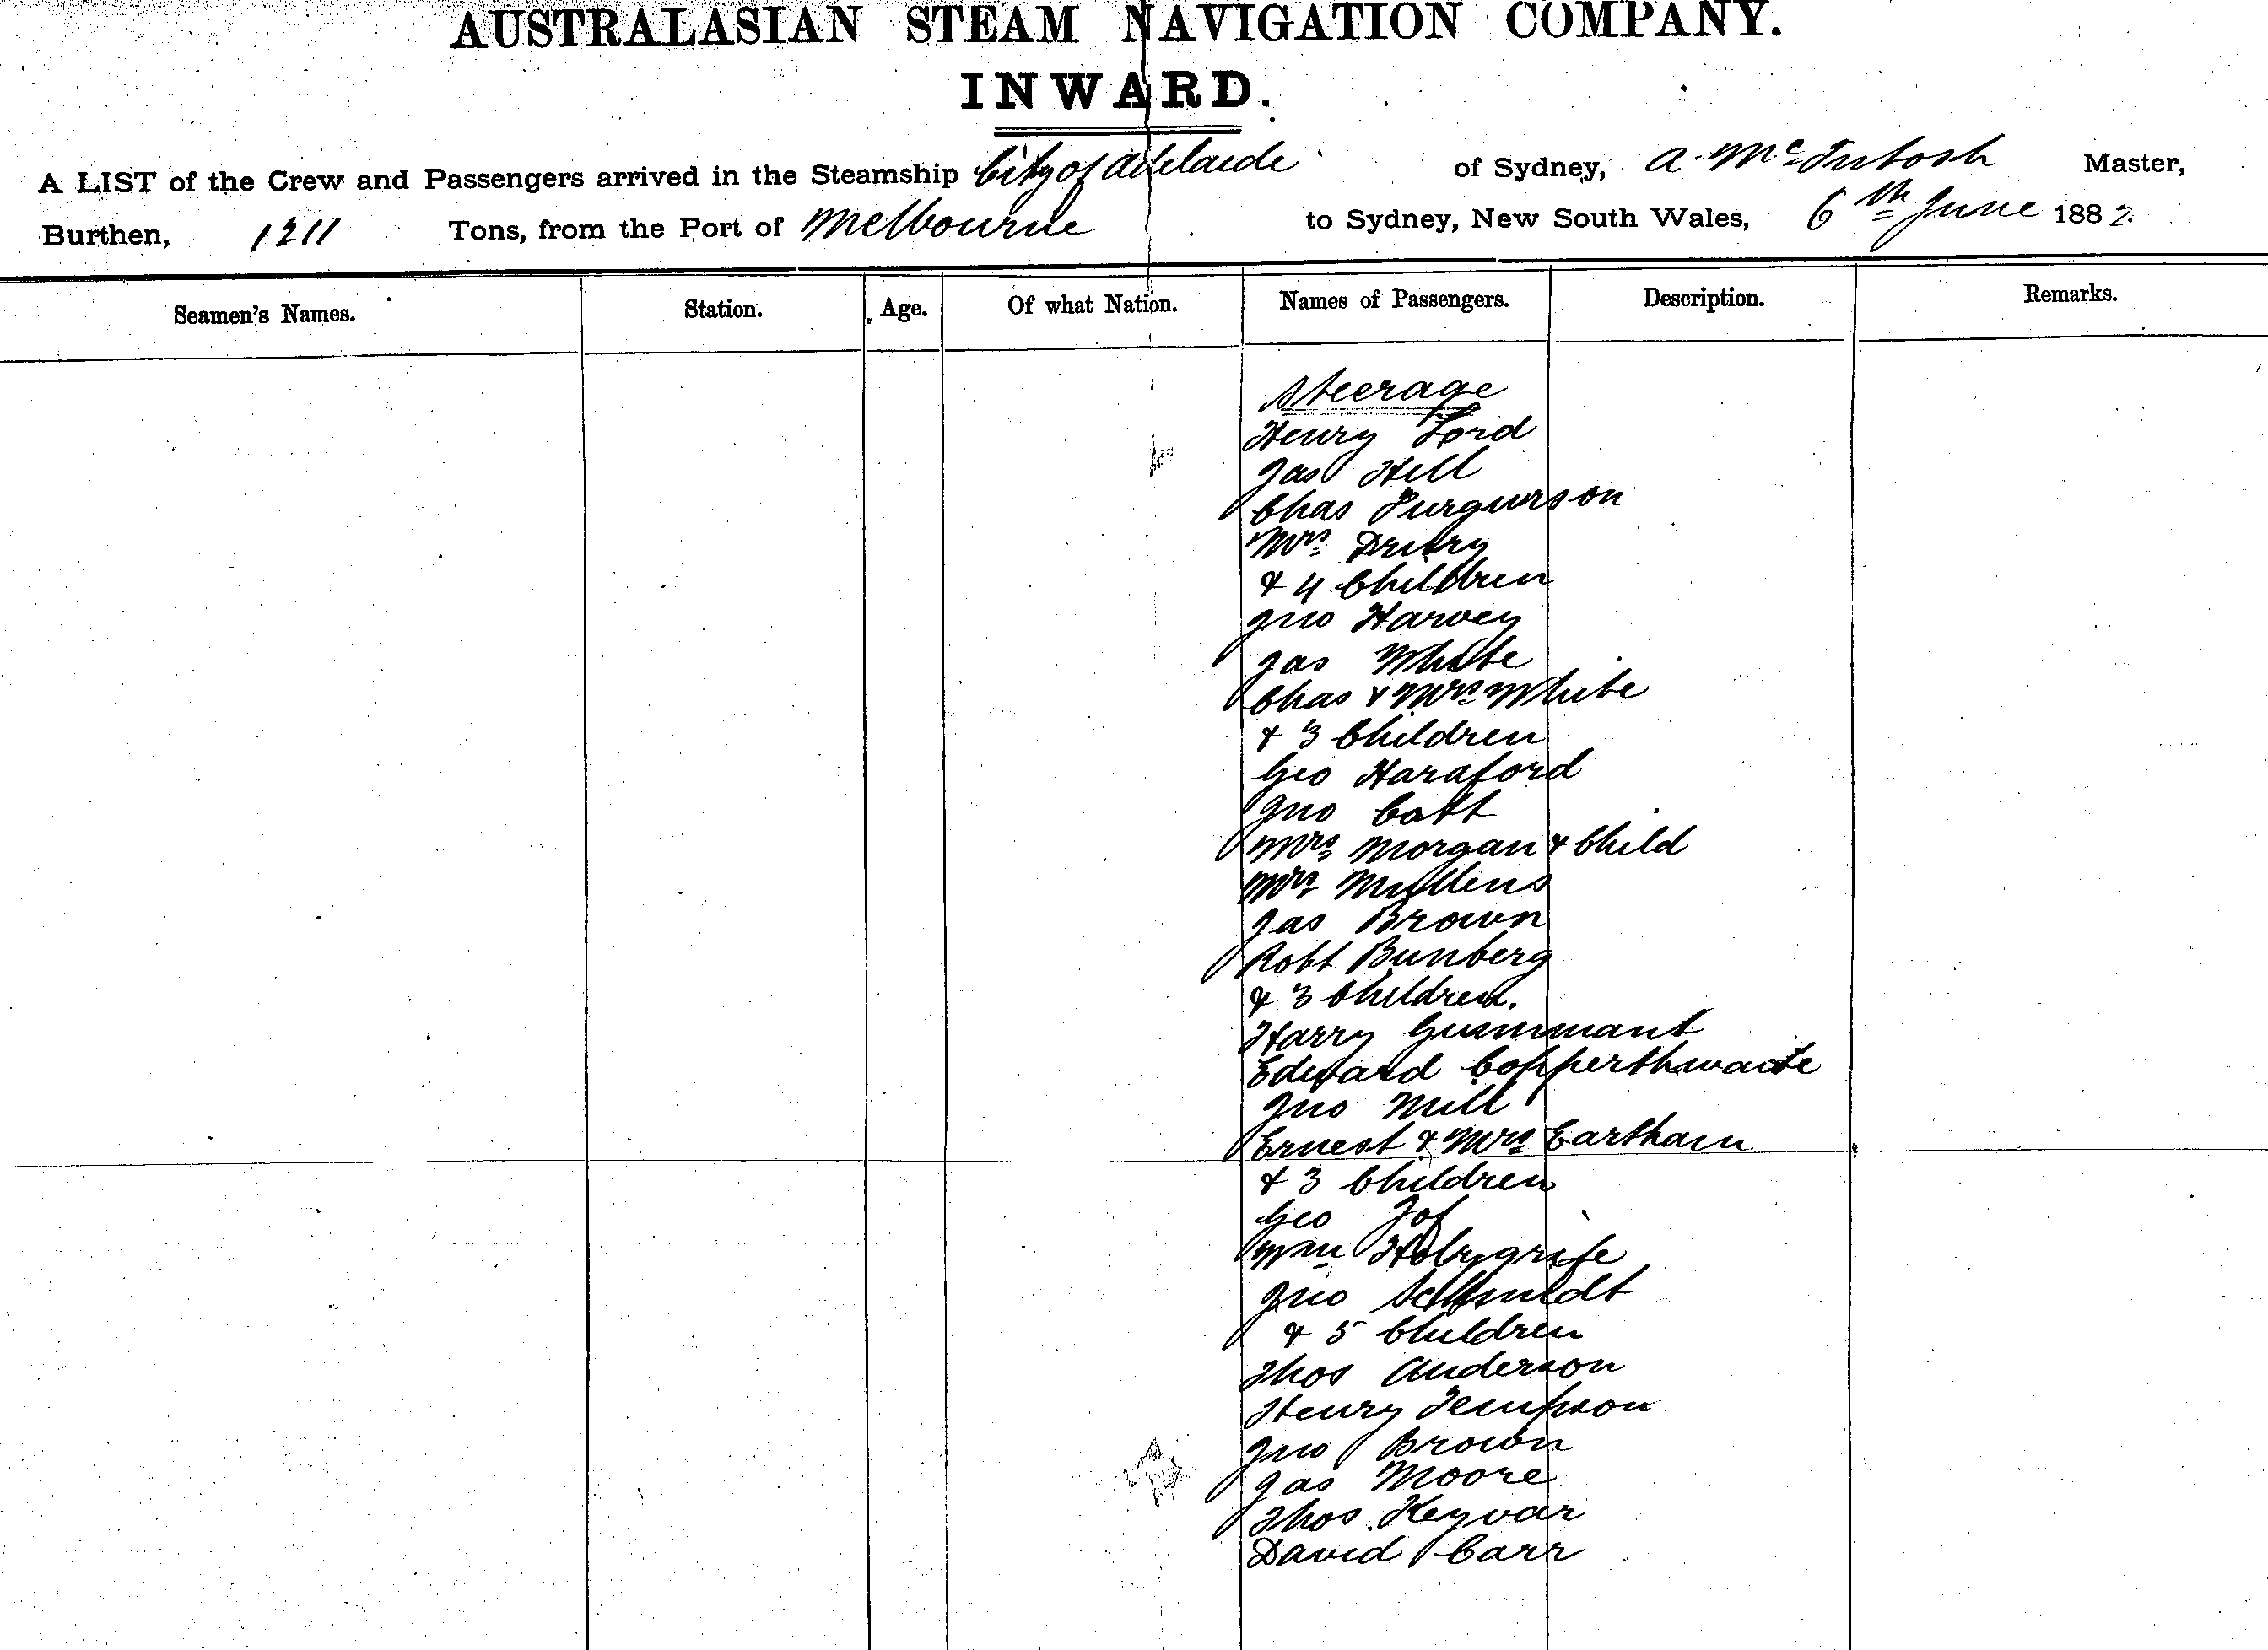 AUSTRALASIAN STEAM NAVIGATION COMPANY.
INWARD.
A LIST of the Crew and Passengers arrived in the Steamship City of Adelaide of Sydney, A. McIntosh Master,
Burthen, 1211 Tons, from the Port of Melbourne to Sydney, New South Wales, 6th June 1882.
Seamen's Names. Station. Age. Of what Nation. Names of Passengers. Description. Remarks.
Steerage
Henry Ford
Jas Hill
Chas Furgurson
Mrs Drury
& 4 Children
Jno Harvey
Jas White
Chas & Mrs White
& 3 Children
Geo Haraford
Jno Catt
Mrs Morgan & Child
Mrs Mullens
Jas Brown
Robt Bunberg
& 3 Children.
Harry
Edward Copperthwaite
Jno Mill
Ernest & Mrs Eartham
& 3 Children
Geo
Wm
Jno Schmidt
& 5 Children
Thos Anderson
Henry Tempson
Jno Brown
Jas Moore
Thos Keyvar
David Carr